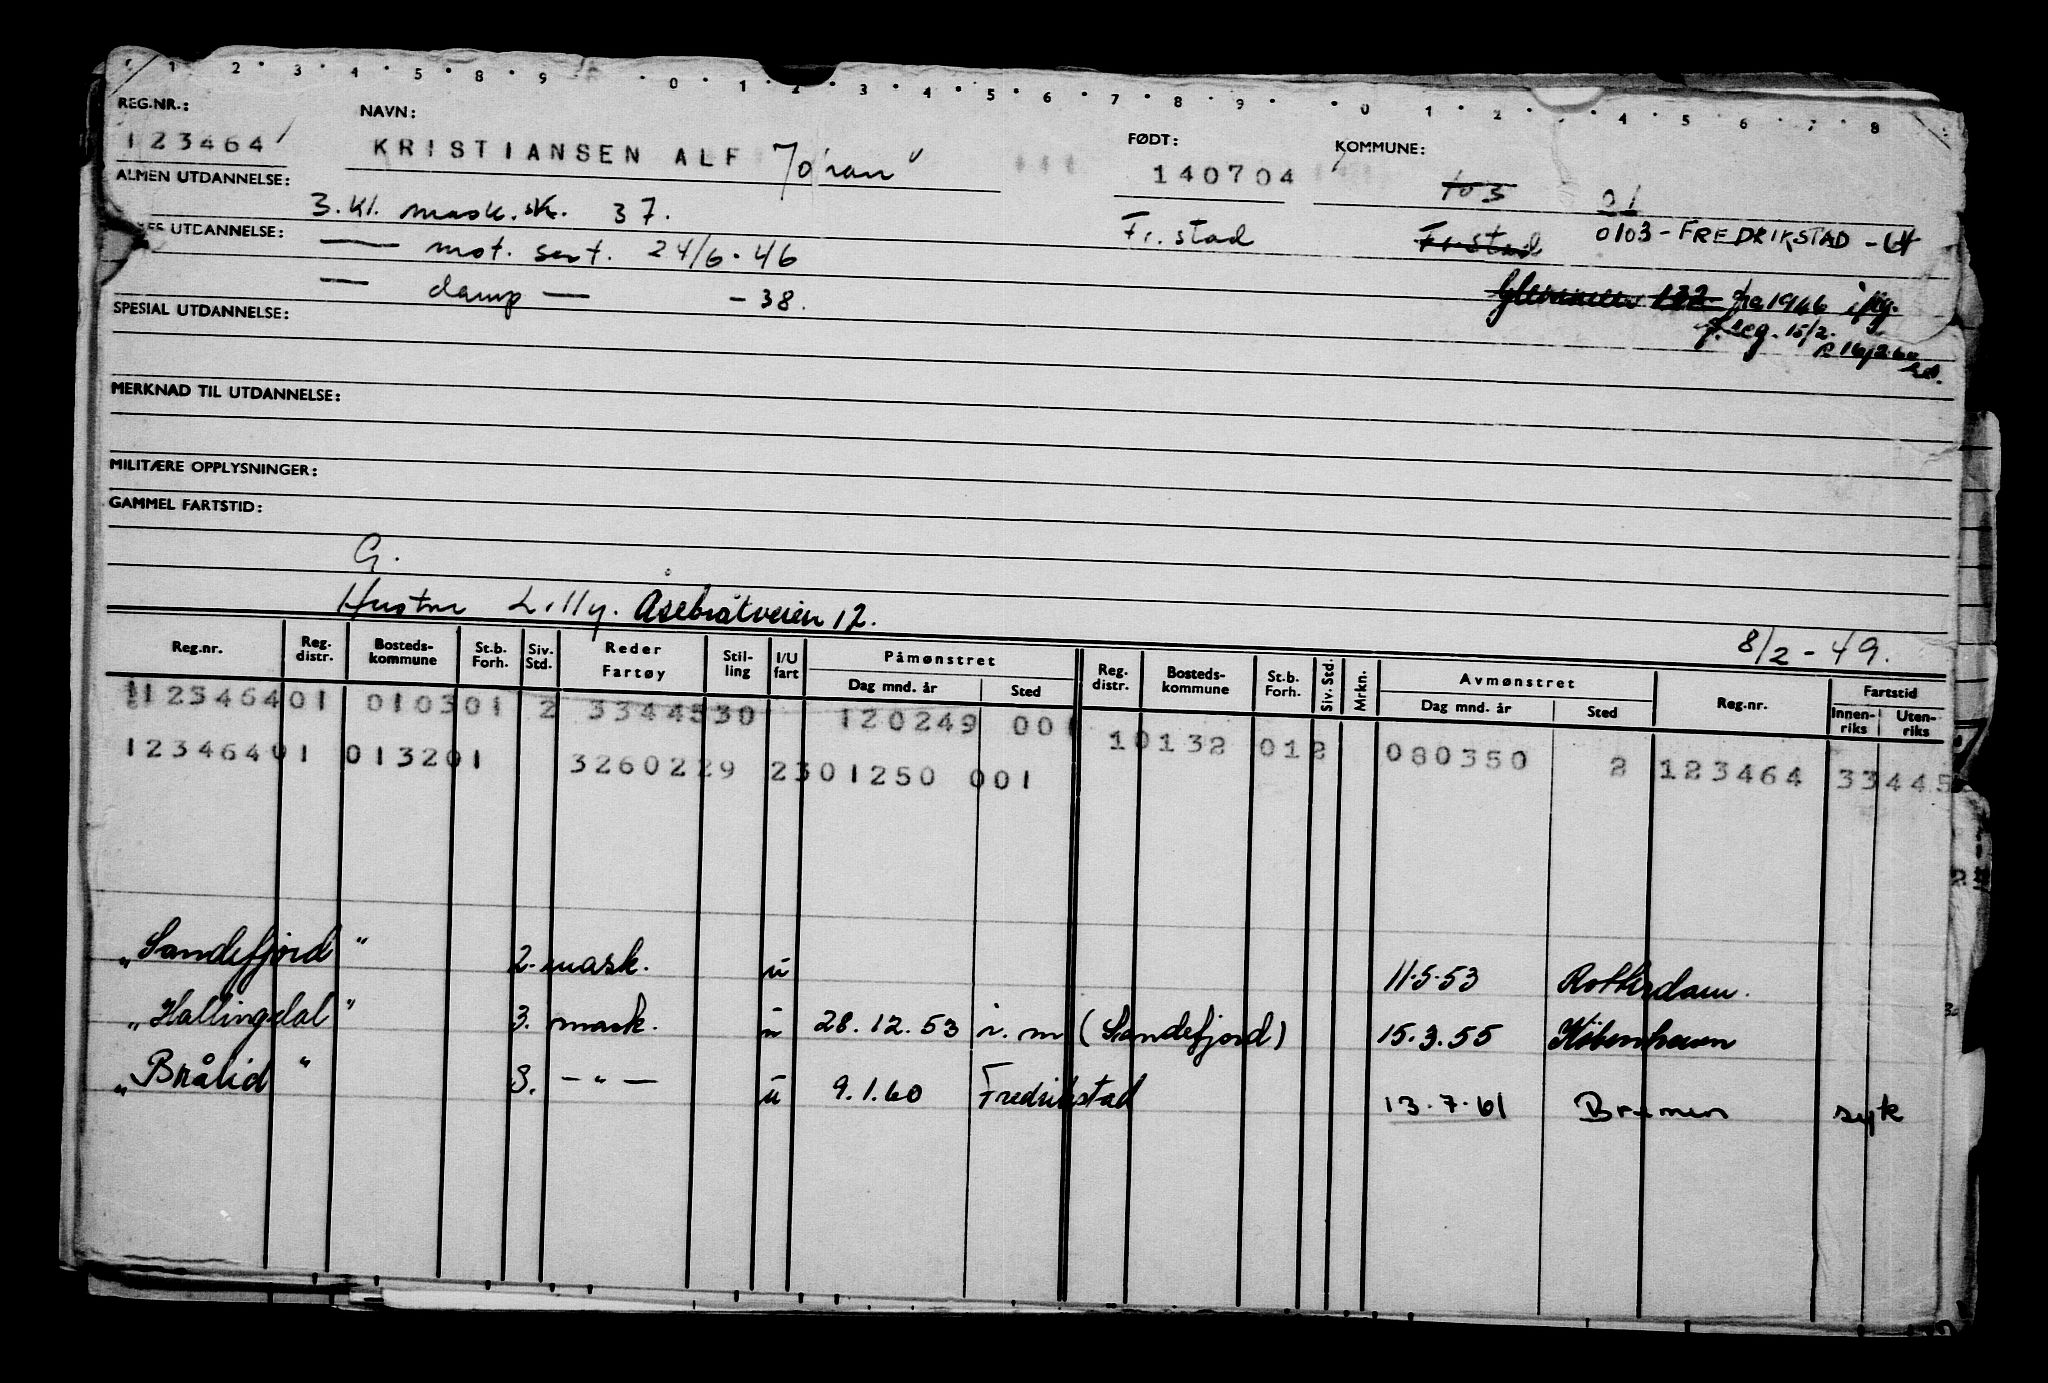 1 2 3 4 5 8 9 0 1 2 3 4 5 6 7 8 9 0 1 2 4 5 6 7 8
REG.NR.: NAVN: FØDT: KOMMUNE:
123464 KRISTIANSEN ALF 140704 103 01
ALMEN UTDANNELSE: 3. kl. mask. sk. 37. Fr.stad Fr.stad 0103 - FREDRIKSTAD - 64
UTDANNELSE: — mot. sert. 24/6.46
— damp — - 38. 132 fra 1946 iflg.
SPESIAL UTDANNELSE: f.reg. 15/2.
MERKNAD TIL UTDANNELSE:
MILITÆRE OPPLYSNINGER:
GAMMEL FARTSTID:
G.
Hustru Lilly. Åsebråtveien 12.
8/2 - 49.
Reg.nr. Reg. distr. Bosteds- kommune St.b. Forh. Siv. Std. Reder Fartøy Stil- ling I/U fart Påmønstret Dag mnd. år Sted Reg. distr. Bosteds- kommune St.b. Forh. Siv. Std. Mrkn. Avmønstret Dag mnd. år Sted Reg.nr. Fartstid Innen- riks Uten- riks
12346401 010301 2 3344530 120249 001
12346401 013201 3260229 2301250 001 10132 012 080350 2 123464 33445
„Sandefjord" 2. mask. u 11.5.53 Rotterdam.
„Hallingdal" 3. mask. u 28.12.53 i.m (Sandefjord) 15.3.55 København
„Brålid" 3. — " — u 9.1.60 Fredrikstad 13.7.61 Bremen syk